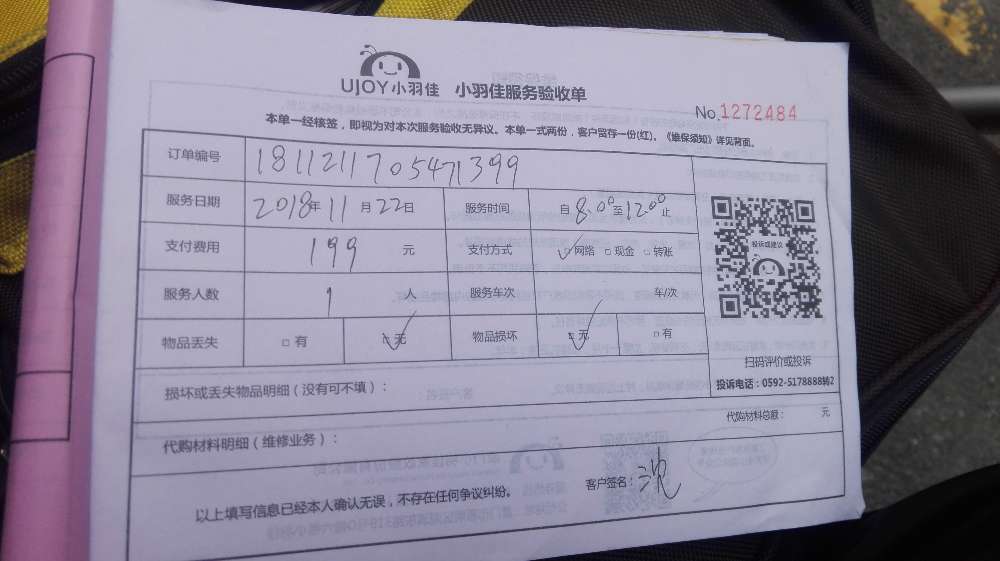 UJOY小羽佳 小羽佳服务验收单
No.1272484
本单一经核签，即视为对本次服务验收无异议。本单一式两份，客户留存一份(红)。《维保须知》详见背面。
订单编号 1811211705471399
服务日期 2018年11月22日 服务时间 自8:00至12:00止
支付费用 199 元 支付方式 ☑网络 □现金 □转账
服务人数 1 人 服务车次 车/次
物品丢失 □有 ☑无 物品损坏 ☑无 □有
投诉或建议
扫码评价或投诉
投诉电话：0592-5178888转2
损坏或丢失物品明细（没有可不填）：
代购材料明细（维修业务）：
代购材料总额： 元
以上填写信息已经本人确认无误，不存在任何争议纠纷。
客户签名：沈